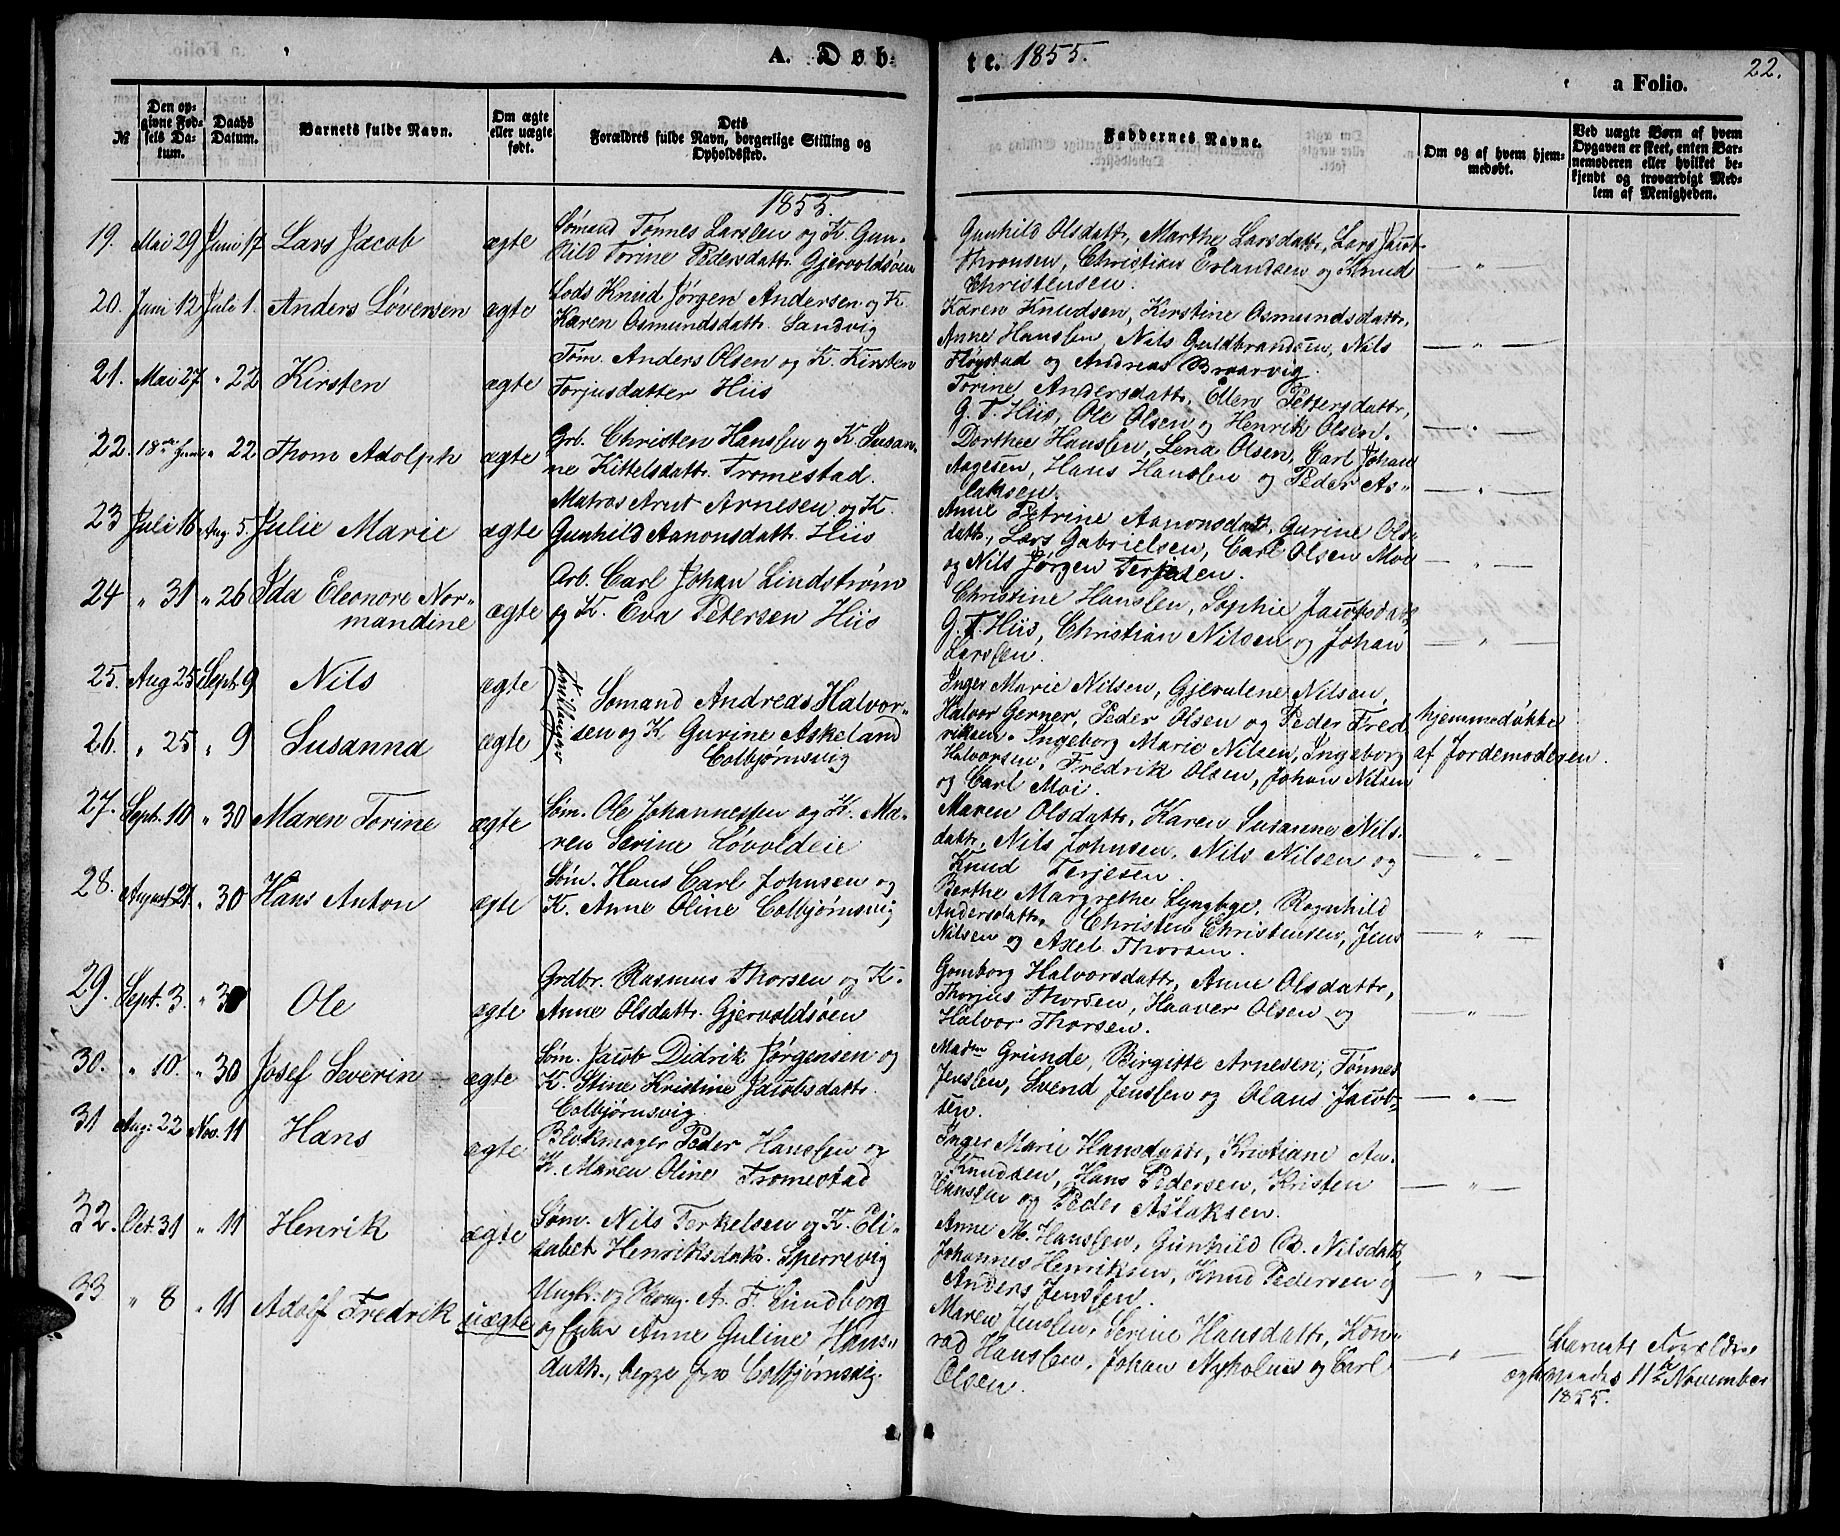 A. Døb-
te. 1855.
a Folio.
22.
№
Den op-
givne Fød-
sels Da-
tum.
Daabs
Datum.
Barnets fulde Navn.
Om ægte
eller uægte
født.
Dets
Forældres fulde Navn, borgerlige Stilling og
Opholdssted.
Faddernes Navne.
Om og af hvem hjem-
medøbt.
Ved uægte Børn af hvem
Opgaven er skeet, enten Bar-
nemoderen eller hvilket be-
kjendt og troværdigt Med-
lem af Menigheden.
1855.
19. Mai 29 Juni 17 Lars Jacob ægte
Sømand Tønnes Larssen og K. Gun-
hild Torine Pedersdattr. Gjervoldsøen
Gunhild Olsdattr, Marthe Larsdattr, Lars Jacob
Thronsen, Christian Erlandsen og Knud
Christensen.
— " —
20. Juni 12 Juli 1. Anders Løvensen ægte
Lods Knud Jørgen Andersen og K.
Karen Osmundsdattr. Sandvig
Karen Knudsen, Kirstine Osmundsdattr,
Anne Hanssen, Nils Guldbrandsen, Nils
Fløystad og Andreas Braarvig.
— " —
21. Mai 27 " 22 Kirsten ægte
Tøm. Anders Olsen og K. Kirsten
Torjusdatter Hiis
Torine Andersdattr, Ellen Pettersdattr,
G. T. Hiis, Ole Olsen og Henrik Olsen.
— " —
22. 18de Juni " 22 Thom Adolph ægte
Arb. Christen Hanssen og K. Susan-
ne Kittelsdattr. Tromestad.
Dorthee Hanssen, Lena Olsen, Carl Johan
Aagesen, Hans Hanssen og Peder As-
laksen.
— " —
23 Juli 16 Aug. 5 Julie Marie ægte
Matros Arnt Arnesen og K.
Gunhild Aanonsdattr. Hiis
Anne Petrine Aanonsdatt, Gurine Ols-
dattr, Lars Gabrielsen, Carl Olsen Moe
og Nils Jørgen Terjesen.
— " —
24 " 31 " 26 Ida Eleonore Nor-
mandine ægte
Arb. Carl Johan Lindstrøm
og K. Eva Petersen Hiis
Christine Hanssen, Sophie Jacobsdatt,
G. T. Hiis, Christian Nilsen og Johan
Larssen.
— " —
25. Aug 25 Sept. 9 Nils ægte
26. " 25 " 9 Susanna ægte
Somand Andreas Halvor-
sen og K Gurine Askeland
Colbjørnsvig
Inger Marie Nilsen, Gjerulene Nilsen,
Halvor Gerner, Peder Olsen og Peder Fred
riksen. Ingeborg Marie Nilsen, Ingeborg
Halvorsen, Fredrik Olsen, Johan Nilsen
og Carl Moi.
hjemmedøbte
af Jordemoderen.
27. Sept. 10 " 30 Maren Torine ægte
Søm. Ole Johannessen og K. Ma-
ren Serine Løvoldeie
Maren Olsdattr, Karen Susanne Nils-
dattr, Nils Johnsen, Nils Nilsen og
Knud Terjesen.
— " —
28. August 21 " 30 Hans Anton ægte
Søm. Hans Carl Johnsen og
K. Anne Oline Colbjørnsvig
Berthe Margrethe Lyngbye, Ragnhild
Andersdattr, Christen Christensen, Jens
Nilsen og Axel Thorsen.
— " —
29. Sept. 3. " 30 Ole ægte
Grdbr. Rasmus Thorsen og K.
Anne Olsdattr. Gjervoldsøen
Gomborg Halvorsdattr, Anne Olsdattr,
Thorjus Thorsen, Haaver Olsen og
Halvor Thorsen.
— " —
30. " 10. " 30 Josef Severin ægte
Søm. Jacob Didrik Jørgensen og
K. Stine Kristine Jacobsdattr.
Colbjørnsvig.
Madm Grunde, Birgitte Arnesen, Tønnes
Jenssen, Svend Jenssen og Olaus Jacob-
sen.
— " —
31 Aug: 22 Nov. 11 Hans ægte
Blokmager Peder Hanssen og
K. Maren Oline Tromestad
Inger Marie Hansdattr, Kristiane An-
Knudsen, Hans Pedersen, Kristen
Hanssen og Peder Aslaksen.
— " —
32. Oct. 31 " 11 Henrik ægte
Søm. Nils Terkelsen og K. Eli-
sabet Henriksdatr. Sperrevig
Anne M. Hanssen, Gunhild Ca. Nilsdatt,
Johannes Henriksen, Knud Pedersen og
Anders Jenssen.
— " —
33 " 8 " 11 Adolf Fredrik uægte
Ungk. og A. F. Lundborg
og Enke Anne Guline Hans-
datt., begge fra Colbjørnsvig.
Maren Jenssen, Serine Hansdattr, Kon-
rad Hanssen, Johan Nyholm og Carl
Olsen.
— " —
Barnets Forældre
ægteviedes 11te November
1855.